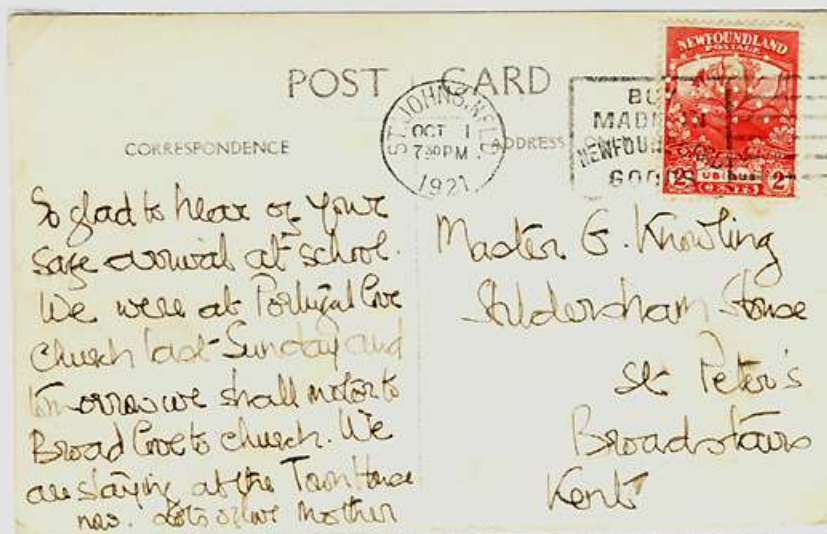 POST CARD
CORRESPONDENCE
ADDRESS
ST. JOHN'S, NFLD
OCT 1
7 30 PM
1921
BUY
MADE IN
NEWFOUNDLAND
GOODS
NEWFOUNDLAND
POSTAGE
2 UBIQUE 2
CENTS
So glad to hear of your
safe arrival at school.
We were at Portugal Cove
Church last Sunday and
tomorrow we shall motor to
Broad Cove to church. We
are staying at the Town House
now. Lots of love Mother
Master G. Knowling
Stildersham House
St. Peter's
Broadstairs
Kent